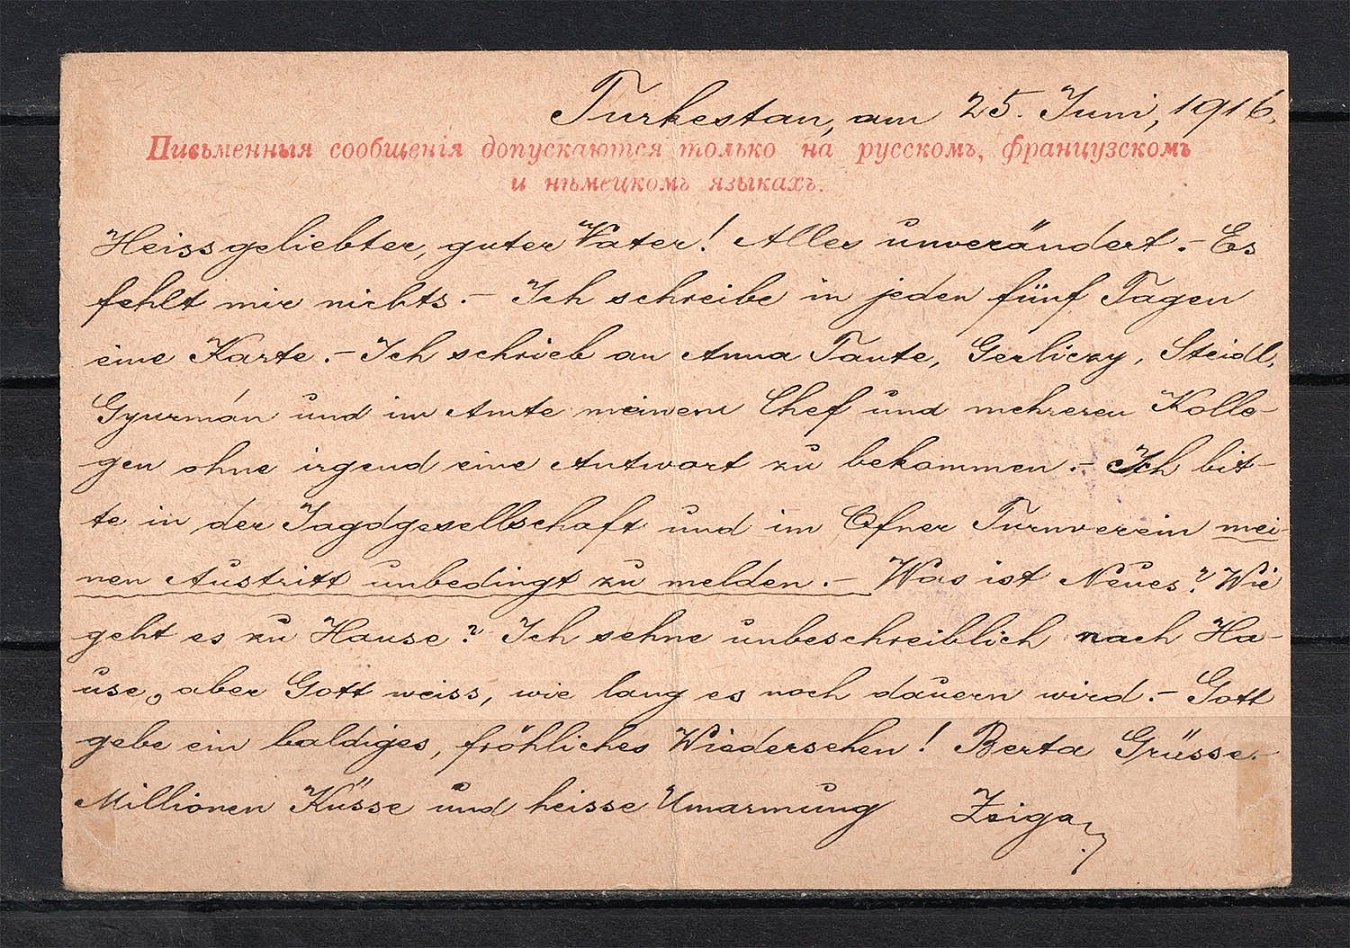 Turkestan, am 25. Juni, 1916.
Письменныя сообщенія допускаются только на русскомъ, французскомъ
и нѣмецкомъ языкахъ.
Heissgeliebter, guter Vater! Alles unverändert. - Es
fehlt mir nichts. - Ich schreibe in jeden fünf Tagen
eine Karte. - Ich schrieb an Anna Tante, Gerliczy, Steidl,
Gyurmán und im Amte meinem Chef und mehreren Kolle-
gen ohne irgend eine Antwort zu bekommen. - Ich bit-
te in der Jagdgesellschaft und im Ofner Turnverein mei-
nen Austritt unbedingt zu melden. - Was ist Neues? Wie
geht es zu Hause? Ich sehne unbeschreiblich nach Ha-
use, aber Gott weiss, wie lang es noch dauern wird. - Gott
gebe ein baldiges, fröhliches Wiedersehen! Berta Grüsse. -
Millionen Küsse und heisse Umarmung Zsiga